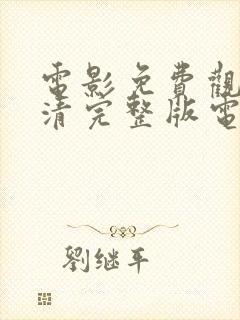 電影免費觀
清完整版電
劉继平